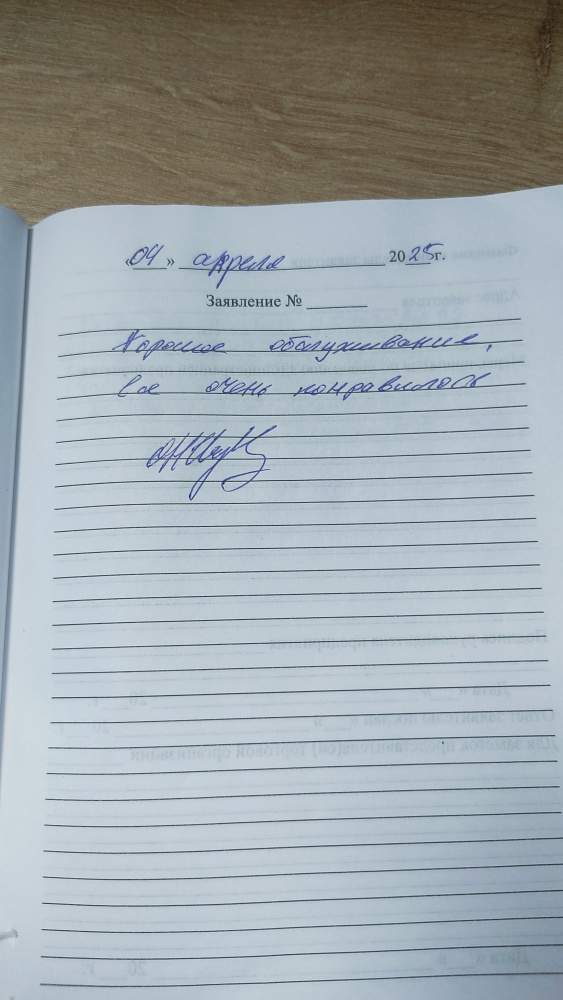 «04» апреля 2025г.
Заявление № ______
Хорошее обслуживание,
все очень понравилось